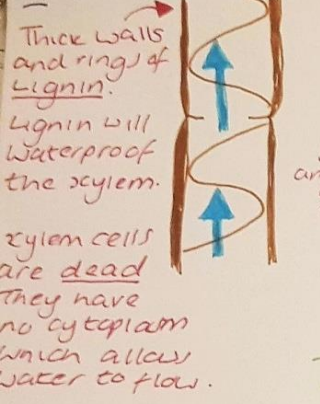 Thick walls
and rings of
Lignin.
Lignin will
waterproof
the xylem.
xylem cells
are dead
They have
no cytoplasm
which allows
water to flow.